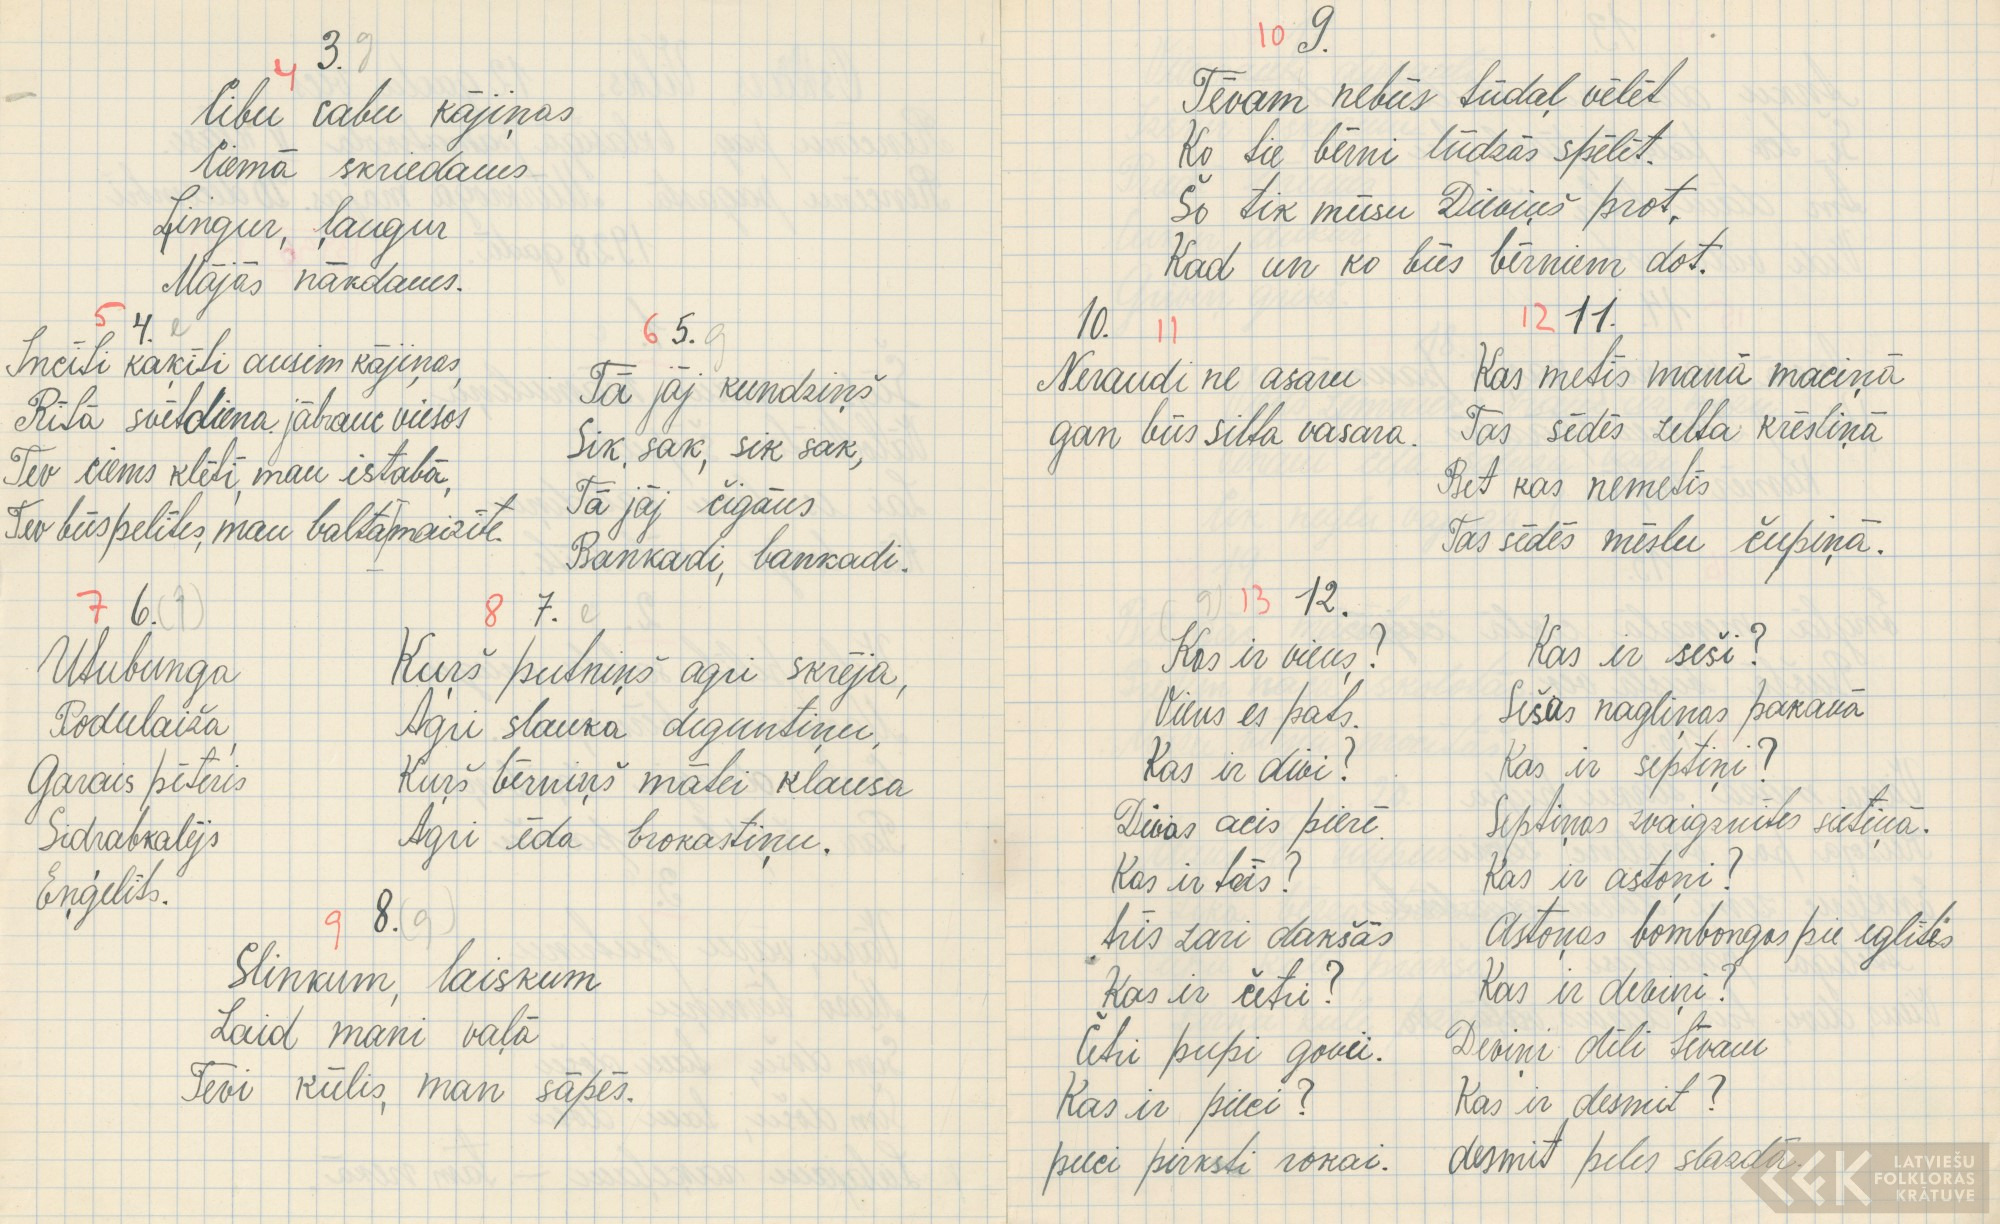 4 3. g
Cibu cabu kājiņas
Ciemā skriedams
Ļingur, ļaugur
Mājās nākdams.
5 4. e
Incīti kaķīti ausim kājiņas,
Rītā svētdiena jābrauc viesos
Tev ciems klētī, man istabā,
Tev būs pelītes, man balta maizīte.
6 5. g
Tā jāj kundziņš
Sik, sak, sik sak,
Tā jāj čigāns
Bankadi, bankadi.
7 6. (9)
Utubunga
Podulaiža,
Garais pēteris
Sidrabkalējs
Eņģelīts.
8 7. e
Kuŗš putniņš agri skrēja,
Agri slauka deguntiņu,
Kuŗš bērniņš mātei klausa
Agri ēda brokastiņu.
9 8. (g)
Slinkum, laiskum
Laid mani vaļā
Tevi kūlis, man sāpēs.
10 9.
Tēvam nebūs tūdaļ vēlēt
Ko tie bērni lūdzās spēlēt.
Šo tik mūsu Dieviņš prot,
Kad un ko būs bērniem dot.
10. 11
Neraudi ne asaru
gan būs silta vasara.
12 11.
Kas metīs manā maciņā
Tas sēdēs zelta krēsliņā
Bet kas nemetīs
Tas sēdēs mēslu čupiņā.
(g) 13 12.
Kas ir viens?
Viens es pats.
Kas ir divi?
Divas acis pierē.
Kas ir trīs?
trīs zari dakšās
Kas ir četri?
Četri pupi govei.
Kas ir pieci?
pieci pirksti rokai.
Kas ir seši?
Sešas nagliņas pakavā
Kas ir septiņi?
Septiņas zvaigznītes sietiņā.
Kas ir astoņi?
Astoņas bombongas pie eglītes
Kas ir deviņi?
Deviņi dēli tēvam
Kas ir desmit?
desmit peles slazdā.
LATVIEŠU
FOLKLORAS
KRĀTUVE